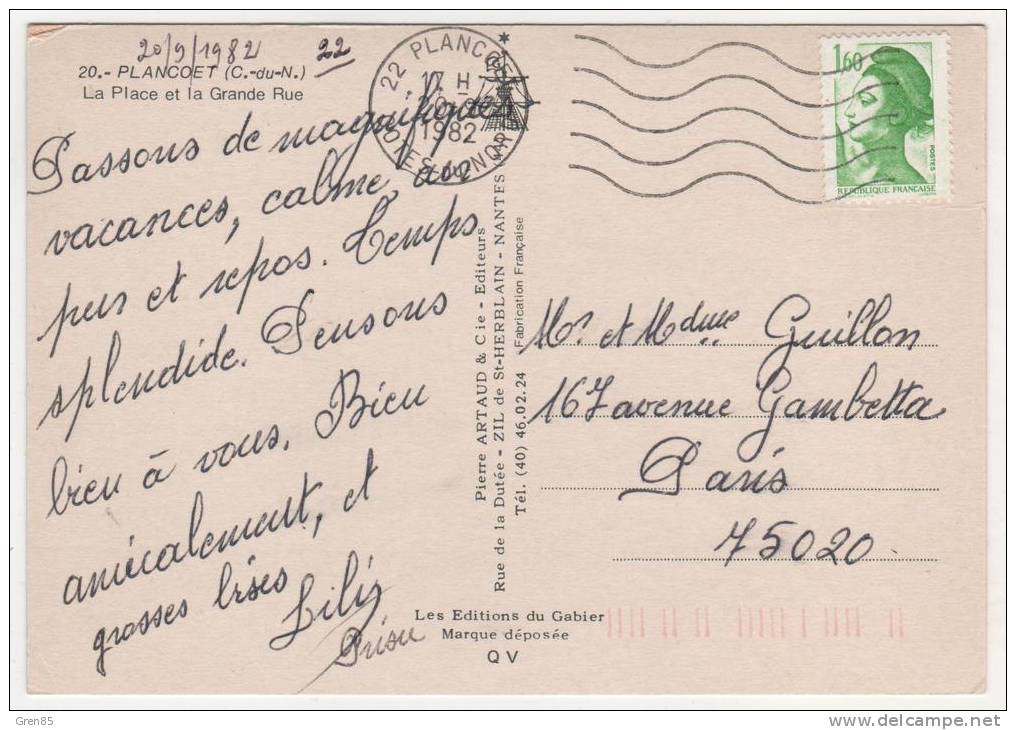 20/9/1982 22
20.- PLANCOET (C.-du-N.)
La Place et la Grande Rue
22 PLANCOET
17 H
1982
COTES DU NORD
1,60
POSTES
REPUBLIQUE FRANÇAISE
Passons de magnifiques
vacances, calme, air
pur et repos. Temps
splendide. Pensons
bien à vous. Bien
amicalement, et
grosses bises
Pierre ARTAUD & Cie - Editeurs
Rue de la Dutée - ZIL de St-HERBLAIN - NANTES
Tél. (40) 46.02.24 Fabrication Française
Mr et Mdme Guillon
167 avenue Gambetta
Paris
75020
Les Editions du Gabier
Marque déposée
QV
Gren85
www.delcampe.net